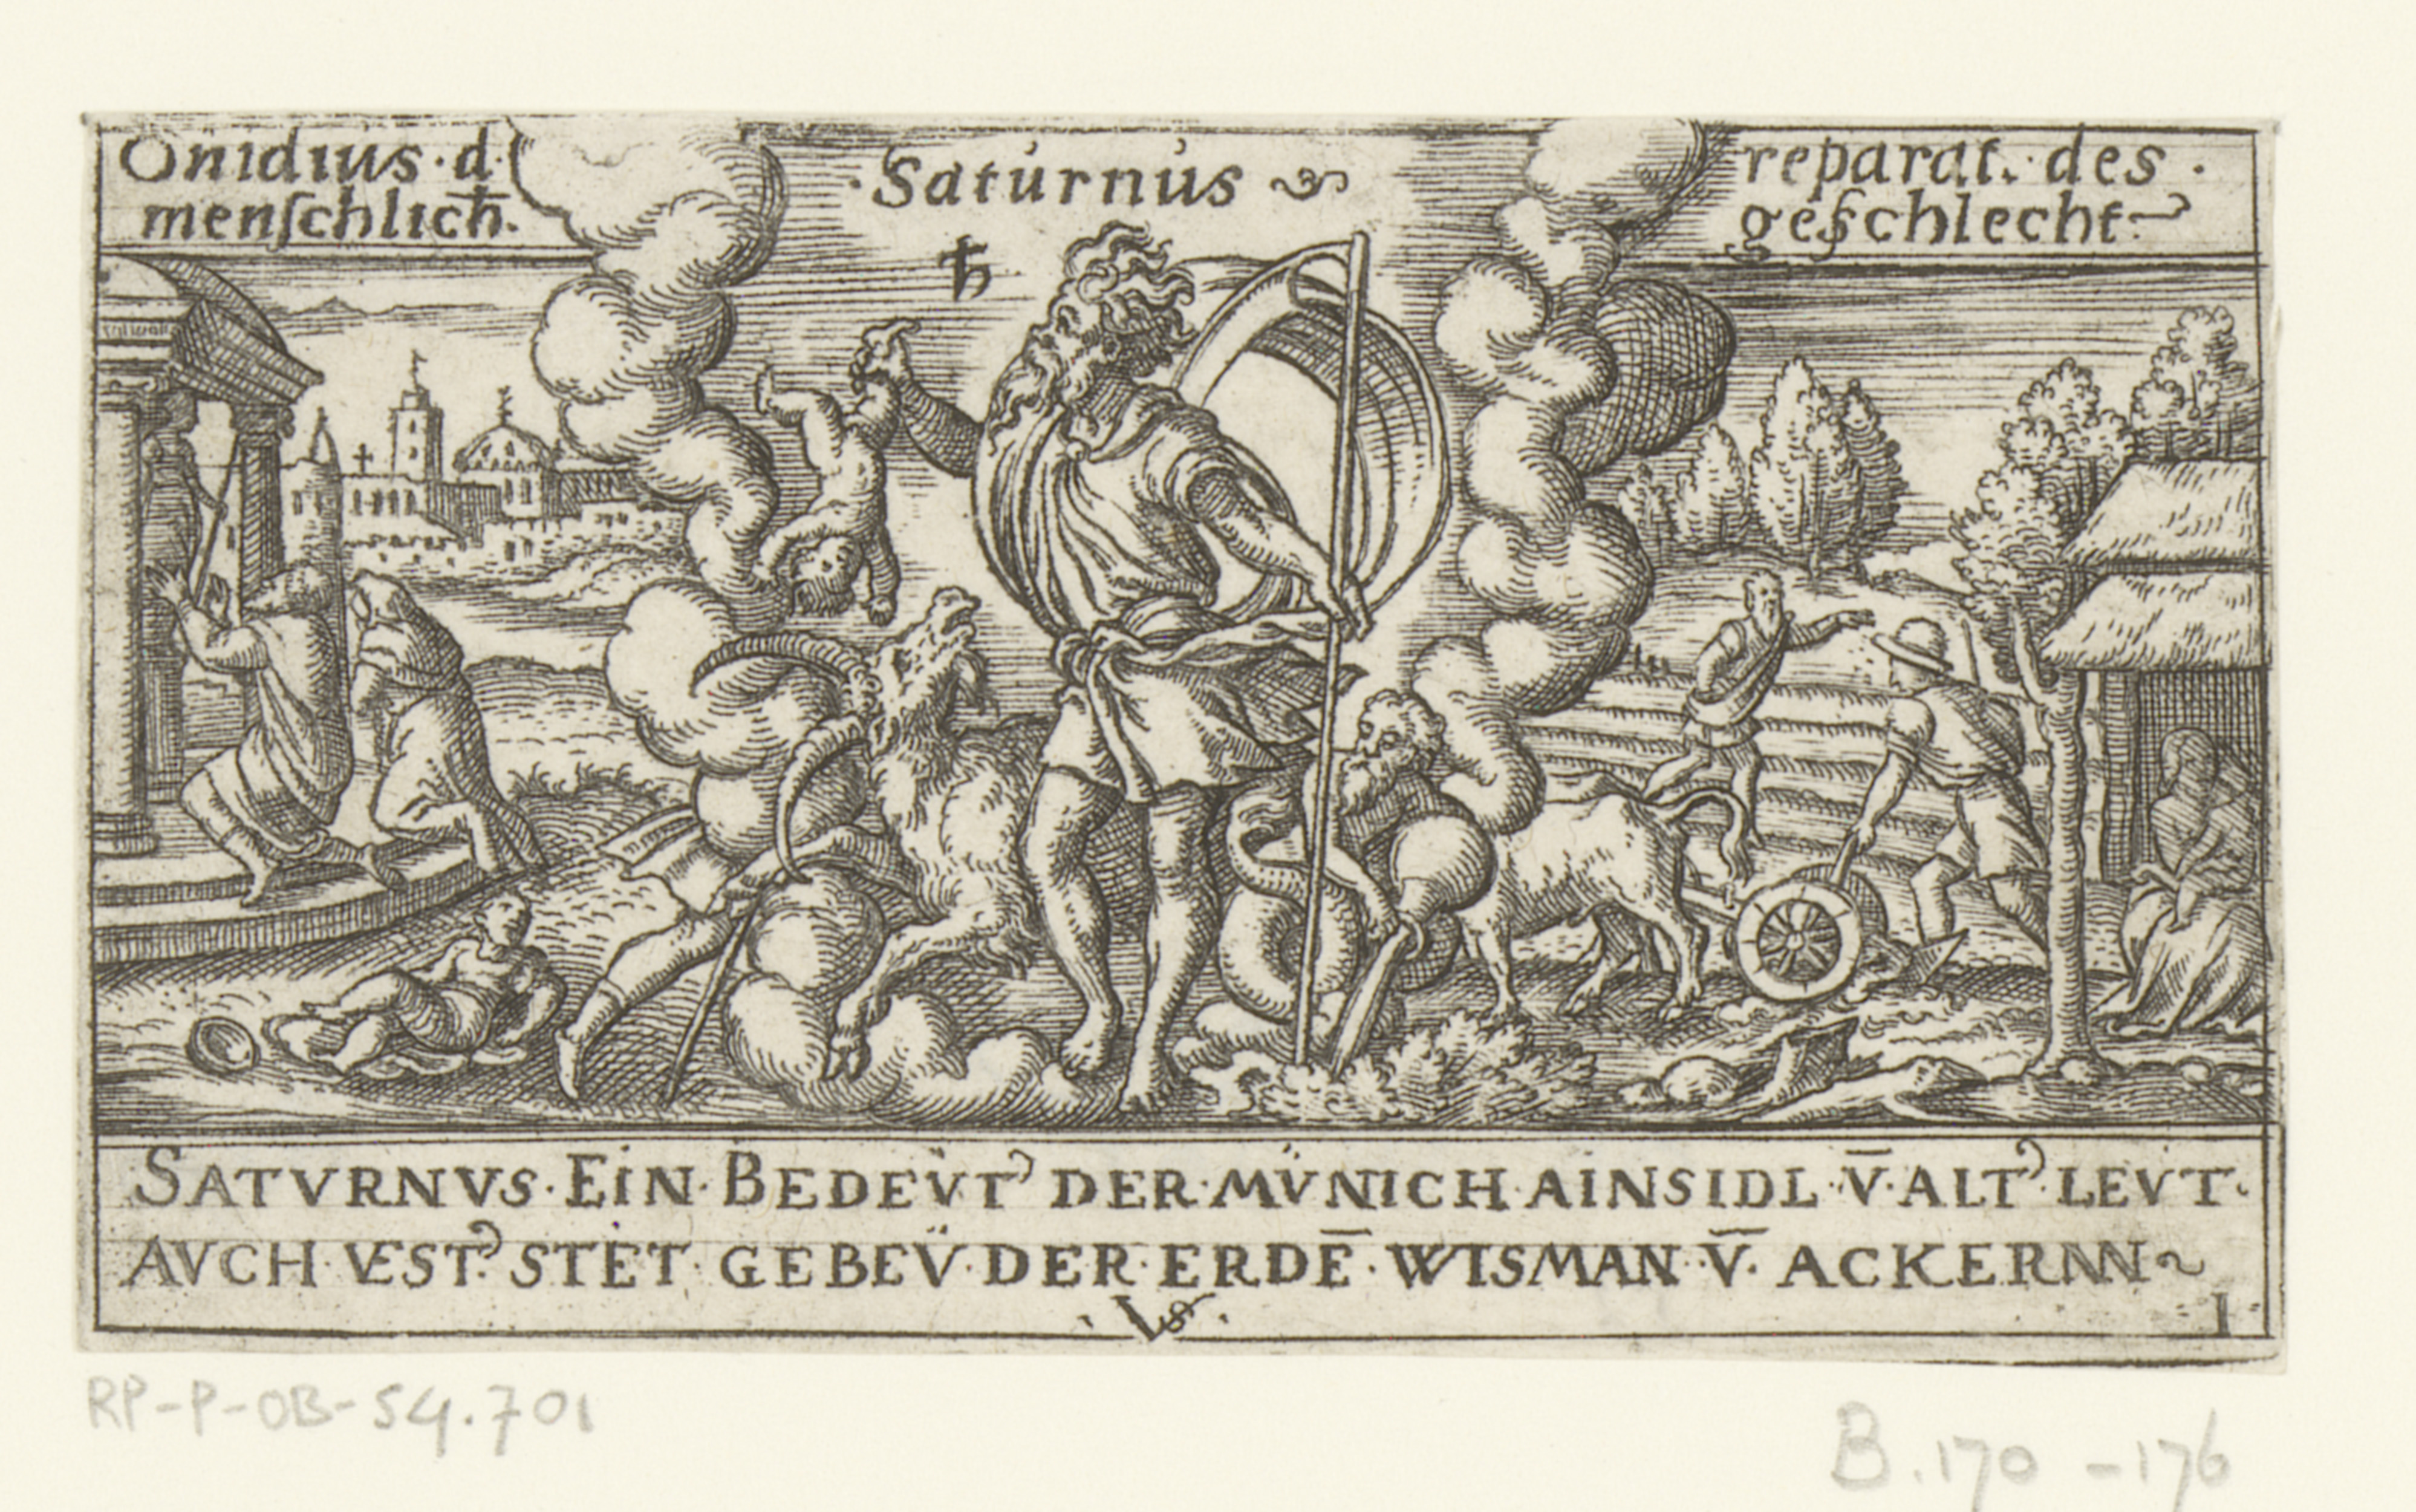 Onidius · d
menſchlich̄.
· Saturnus
♄
reparat. des ·
geſchlecht
SATVRNVS · EIN · BEDEVT' DER · MVNICH · AINSIDL · V̄ · ALT' · LEVT ·
AVCH · VEST' STET · GEBEV̈ · DER · ERDĒ · WISMAN · V̄ · ACKERNN ~
· VS ·
I
RP-P-OB-54.701
B. 170 - 176